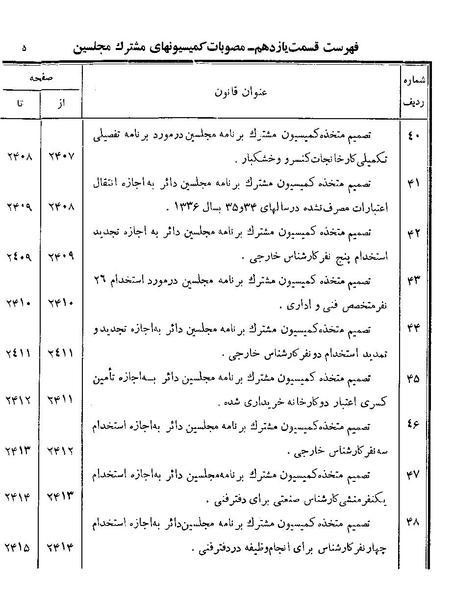 فهرست قسمت یازدهم ـ مصوبات کمیسیونهای مشترك مجلسین ۵
شماره ردیف عنوان قانون صفحه
از تا
۴۰ تصمیم متخذه کمیسیون مشترك برنامه مجلسین در مورد برنامه تفصیلی
تکمیلی کارخانجات کنسرو و خشکبار . ۲۴۰۷ ۲۴۰۸
۴۱ تصمیم متخذه کمیسیون مشترك برنامه مجلسین دائر به اجازه انتقال
اعتبارات مصرف نشده در سالهای ۳۴ و ۳۵ بسال ۱۳۳۶ . ۲۴۰۸ ۲۴۰۹
۴۲ تصمیم متخذه کمیسیون مشترك برنامه مجلسین دائر به اجازه تجدید
استخدام پنج نفر کارشناس خارجی . ۲۴۰۹ ۲۴۰۹
۴۳ تصمیم متخذه کمیسیون مشترك برنامه مجلسین در مورد استخدام ۲۶
نفر متخصص فنی و اداری . ۲۴۱۰ ۲۴۱۰
۴۴ تصمیم متخذه کمیسیون مشترك برنامه مجلسین دائر به اجازه تجدید و
تمدید استخدام دو نفر کارشناس خارجی . ۲۴۱۱ ۲۴۱۱
۴۵ تصمیم متخذه کمیسیون مشترك برنامه مجلسین دائر بـه اجازه تأمین
کسری اعتبار دو کارخانه خریداری شده . ۲۴۱۱ ۲۴۱۲
۴۶ تصمیم متخذه کمیسیون مشترك برنامه مجلسین دائر به اجازه استخدام
سه نفر کارشناس خارجی . ۲۴۱۲ ۲۴۱۳
۴۷ تصمیم متخذه کمیسیون مشترك برنامه مجلسین دائر به اجازه استخدام
یکنفر منشی کارشناس صنعتی برای دفتر فنی . ۲۴۱۳ ۲۴۱۴
۴۸ تصمیم متخذه کمیسیون مشترك برنامه مجلسین دائر به اجازه استخدام
چهار نفر کارشناس برای انجام وظیفه در دفتر فنی . ۲۴۱۴ ۲۴۱۵